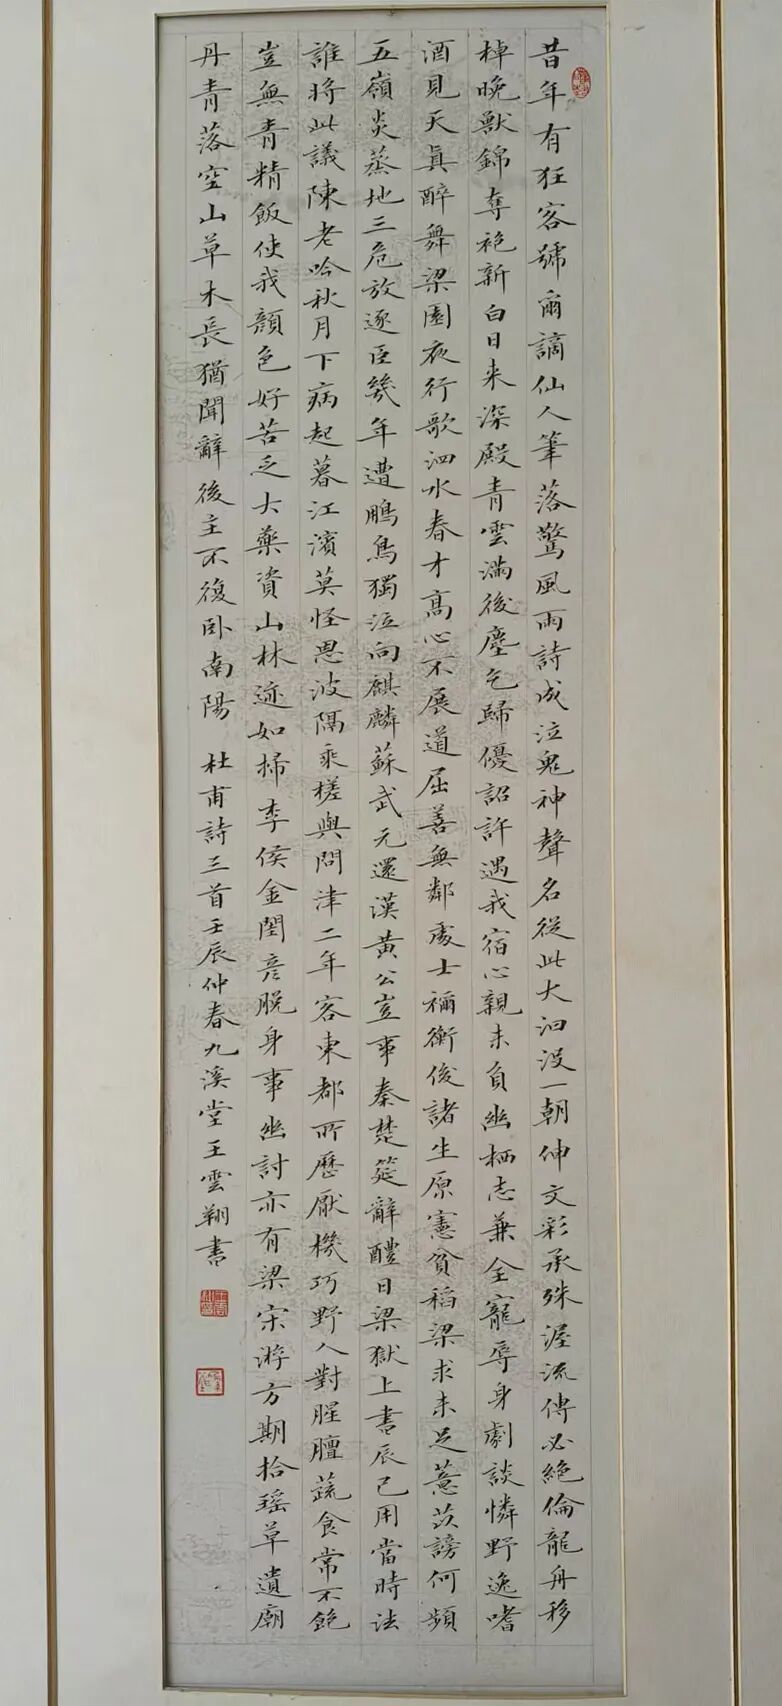 昔年有狂客號爾謫仙人筆落驚風雨詩成泣鬼神聲名從此大汩没一朝伸文彩承殊渥流傳必絶倫龍舟移
棹晚獸錦奪袍新白日来深殿青雲滿後塵乞歸優詔許遇我宿心親未負幽栖志兼全寵辱身劇談憐野逸嗜
酒見天真醉舞梁園夜行歌泗水春才高心不展道屈善無鄰處士禰衡俊諸生原憲貧稻梁求未足薏苡謗何頻
五嶺炎蒸地三危放逐臣幾年遭鵩鳥獨泣向麒麟蘇武元還漢黃公豈事秦楚筵辭醴日梁獄上書辰已用當時法
誰將此議陳老吟秋月下病起暮江濱莫怪恩波隔乘槎與問津二年客東都所歷厭機巧野人對腥膻蔬食常不飽
豈無青精飯使我顔色好苦乏大藥資山林迹如掃李侯金閨彦脱身事幽討亦有梁宋游方期拾瑶草遺廟
丹青落空山草木長猶聞辭後主不復卧南陽 杜甫詩三首壬辰仲春九溪堂王雲翔書